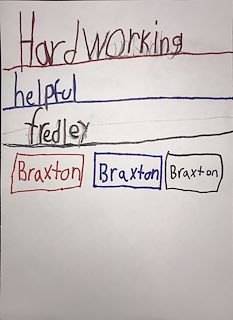 Hardworking
helpful
fredley
Braxton Braxton Braxton